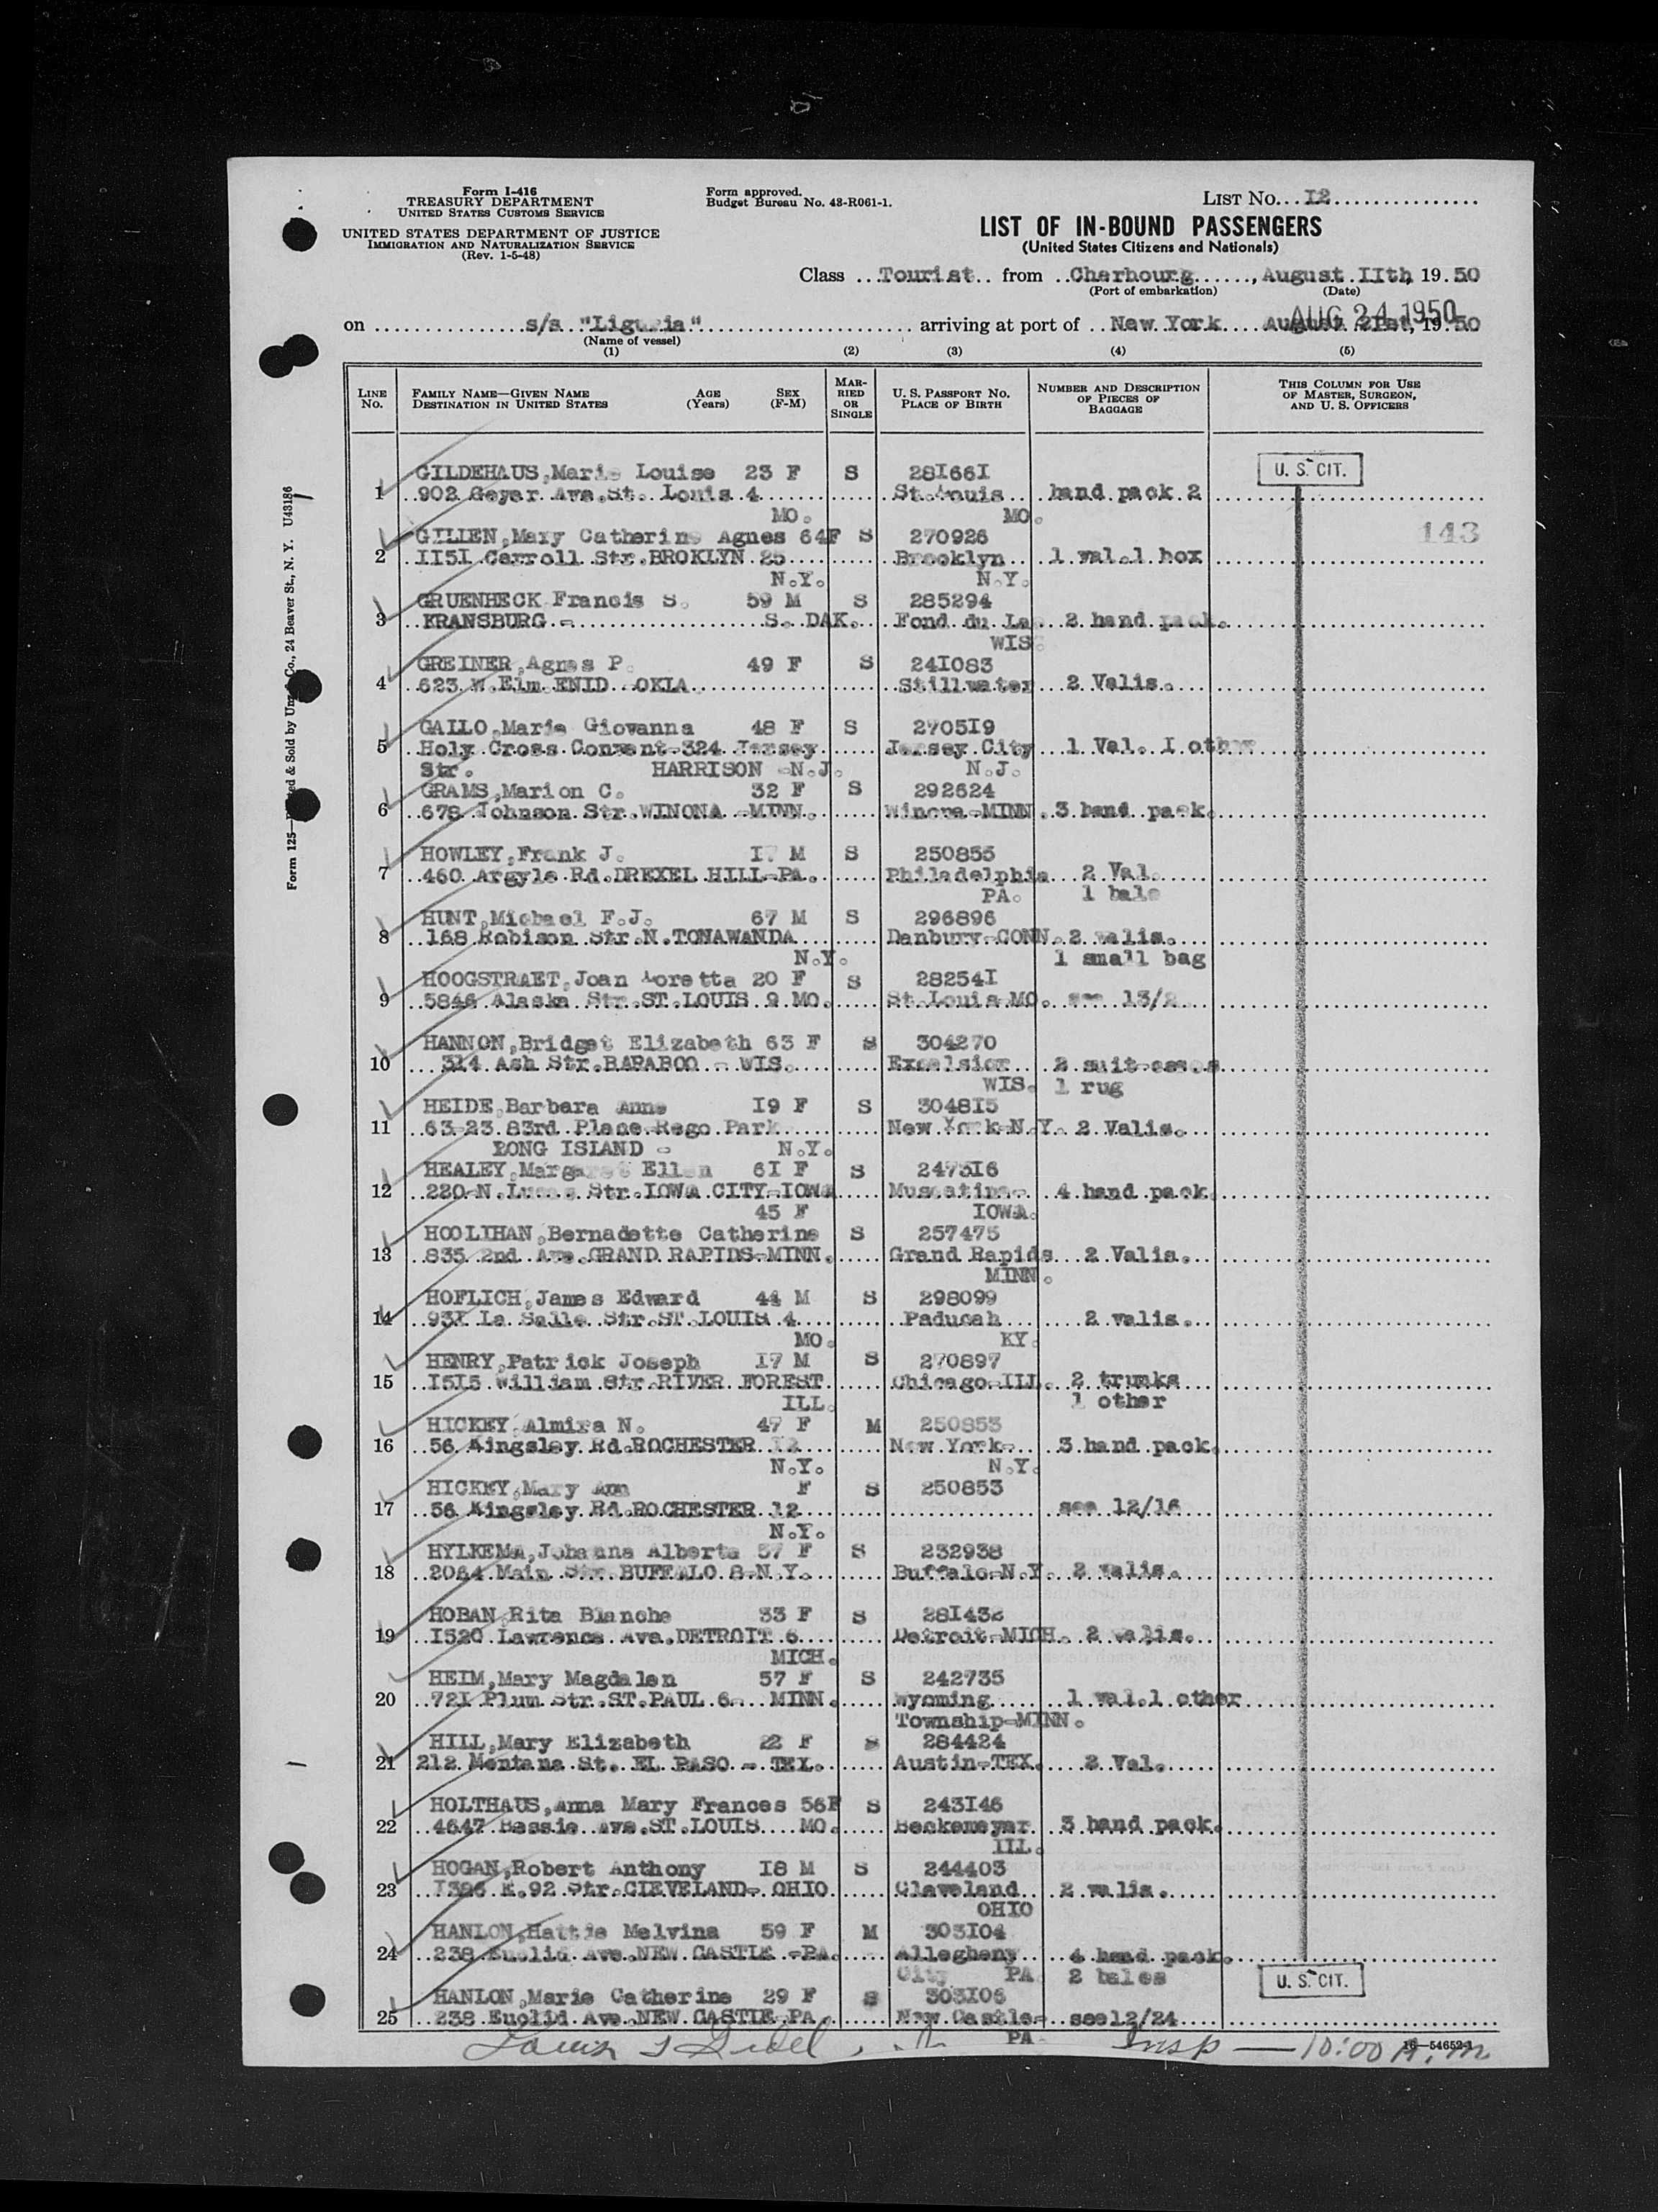 Form I-416
TREASURY DEPARTMENT
UNITED STATES CUSTOMS SERVICE
UNITED STATES DEPARTMENT OF JUSTICE
IMMIGRATION AND NATURALIZATION SERVICE
(Rev. 1-5-48)
Form approved.
Budget Bureau No. 43-R061-1.
LIST NO. I2
LIST OF IN-BOUND PASSENGERS
(United States Citizens and Nationals)
Class Tourist from Cherbourg, August IIth, 19 50
(Port of embarkation) (Date)
AUG 24 1950
on s/s "Liguria" arriving at port of New York August 2Ist, 19 50
(Name of vessel)
(1) (2) (3) (4) (5)
LINE NO. FAMILY NAME—GIVEN NAME DESTINATION IN UNITED STATES AGE (Years) SEX (F-M) MARRIED OR SINGLE U. S. PASSPORT NO. PLACE OF BIRTH NUMBER AND DESCRIPTION OF PIECES OF BAGGAGE THIS COLUMN FOR USE OF MASTER, SURGEON, AND U. S. OFFICERS
GILDEHAUS,Marie Louise 23 F S 28I66I U. S. CIT.
1 902 Geyer Ave.St. Louis 4 St.Louis hand pack 2
MO. MO.
GILIEN,Mary Catherine Agnes 64F S 270926 143
2 II5I Carroll Str.BROKLYN 25 Brooklyn 1 val.1 box
N.Y. N.Y.
GRUENHECK Francis S. 59 M S 285294
3 KRANSBURG - S. DAK. Fond du La 2 hand pack.
WIS
GREINER,Agnes P. 49 F S 24I083
4 623 W.Elm ENID -OKLA Stillwater 2 Valis.
GALLO,Marie Giovanna 48 F S 2705I9
5 Holy Cross Convent-324 Jersey Jersey City 1 Val. I other
Str. HARRISON -N.J. N.J.
GRAMS,Marion C. 32 F S 292624
6 678 Johnson Str.WINONA -MINN. Winona-MINN. 3 hand pack.
HOWLEY,Frank J. I7 M S 250855
7 460 Argyle Rd.DREXEL HILL-PA. Philadelphia 2 Val.
PA. 1 bale
HUNT,Michael F.J. 67 M S 296896
8 168 Robison Str.N.TONAWANDA Danbury-CONN. 2 valis.
N.Y. 1 small bag
HOOGSTRAET,Joan Loretta 20 F S 28254I
9 5846 Alaska Str.ST.LOUIS 9 MO. St.Louis MO. see 13/2
HANNON,Bridget Elizabeth 63 F S 304270
10 314 Ash Str.BARABOO - WIS. Excelsior 2 suit-cases
WIS. 1 rug
HEIDE,Barbara Anne I9 F S 3048I5
11 63-23 83rd Place Rego Park New York-N.Y. 2 Valis.
LONG ISLAND - N.Y.
HEALEY,Margaret Ellen 6I F S 2473I6
12 220-N. Str.IOWA CITY-IOWA Muscatine- 4 hand pack.
45 F IOWA.
HOOLIHAN,Bernadette Catherine S 257475
13 835 2nd Ave.GRAND RAPIDS-MINN. Grand Rapids 2 Valis.
MINN.
HOFLICH,James Edward 44 M S 298099
14 93I La Salle Str.ST.LOUIS 4 Paducah 2 valis.
MO. KY.
HENRY,Patrick Joseph I7 M S 270897
15 I5I5 William Str.RIVER FOREST Chicago-ILL. 2 trunks
ILL. 1 other
HICKEY,Almira N. 47 F M 250853
16 56 Kingsley Rd.ROCHESTER 12 New York- 3 hand pack.
N.Y. N.Y.
HICKEY,Mary Ann F S 250853
17 56 Kingsley Rd.ROCHESTER 12 see 12/16
N.Y.
HYLKEMA,Johanna Alberta 57 F S 232938
18 2064 Main Str.BUFFALO 8-N.Y. Buffalo-N.Y. 2 valis.
HOBAN,Rita Blanche 33 F S 28I432
19 I520 Lawrence Ave.DETROIT 6 Detroit-MICH. 2 valis.
MICH.
HEIM,Mary Magdalen 57 F S 242735
20 72I Plum Str.ST.PAUL 6- MINN. Wyoming 1 val.1 other
Township-MINN.
HILL,Mary Elizabeth 22 F S 284424
21 212 Montana St. EL PASO - TEX. Austin-TEX. 2 Val.
HOLTHAUS,Anna Mary Frances 56F S 243I46
22 4647 Bessie Ave.ST.LOUIS MO. Beckemeyer 3 hand pack.
ILL.
HOGAN,Robert Anthony I8 M S 244403
23 I386 E.92 Str.CLEVELAND- OHIO Cleveland 2 valis.
OHIO
HANLON,Hattie Melvina 59 F M 303I04
24 238 Euclid Ave.NEW CASTLE -PA. Allegheny 4 hand pack.
City PA 2 bales U. S. CIT.
HANLON,Marie Catherine 29 F S 303I06
25 238 Euclid Ave.NEW CASTLE-PA. New Castle- see12/24
PA- Insp — 10:00 A.m
16—54652-1
Form 125— & Sold by Co., 24 Beaver St., N. Y. U43186